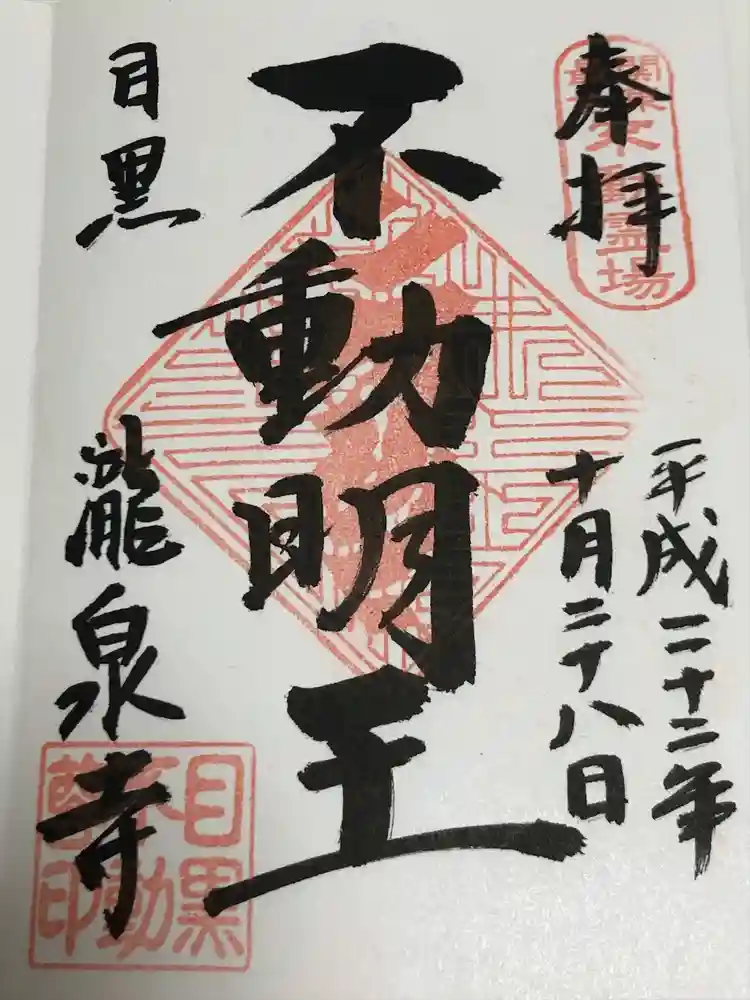 奉拝
関東最古不動霊場
平成二十二年
十月二十八日
不動明王
目黒
瀧泉寺
目黒不動尊印